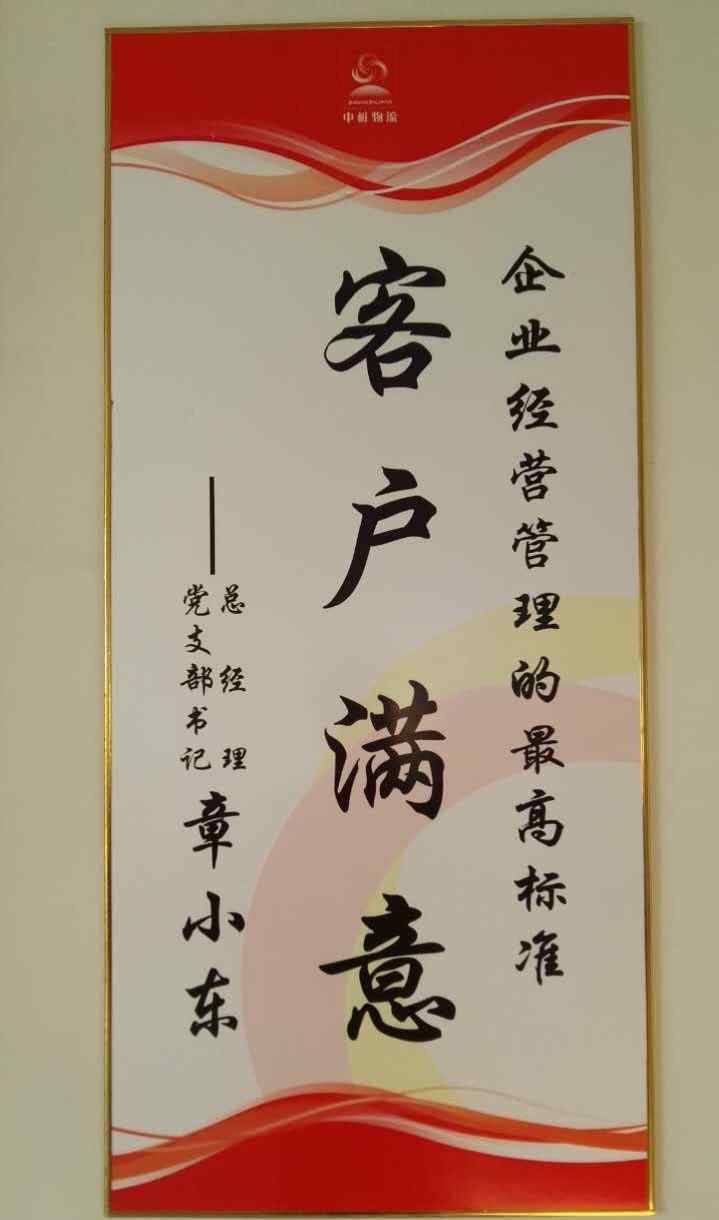 中桓物流
企业经营管理的最高标准
客户满意
——
总经理
党支部书记
章小东